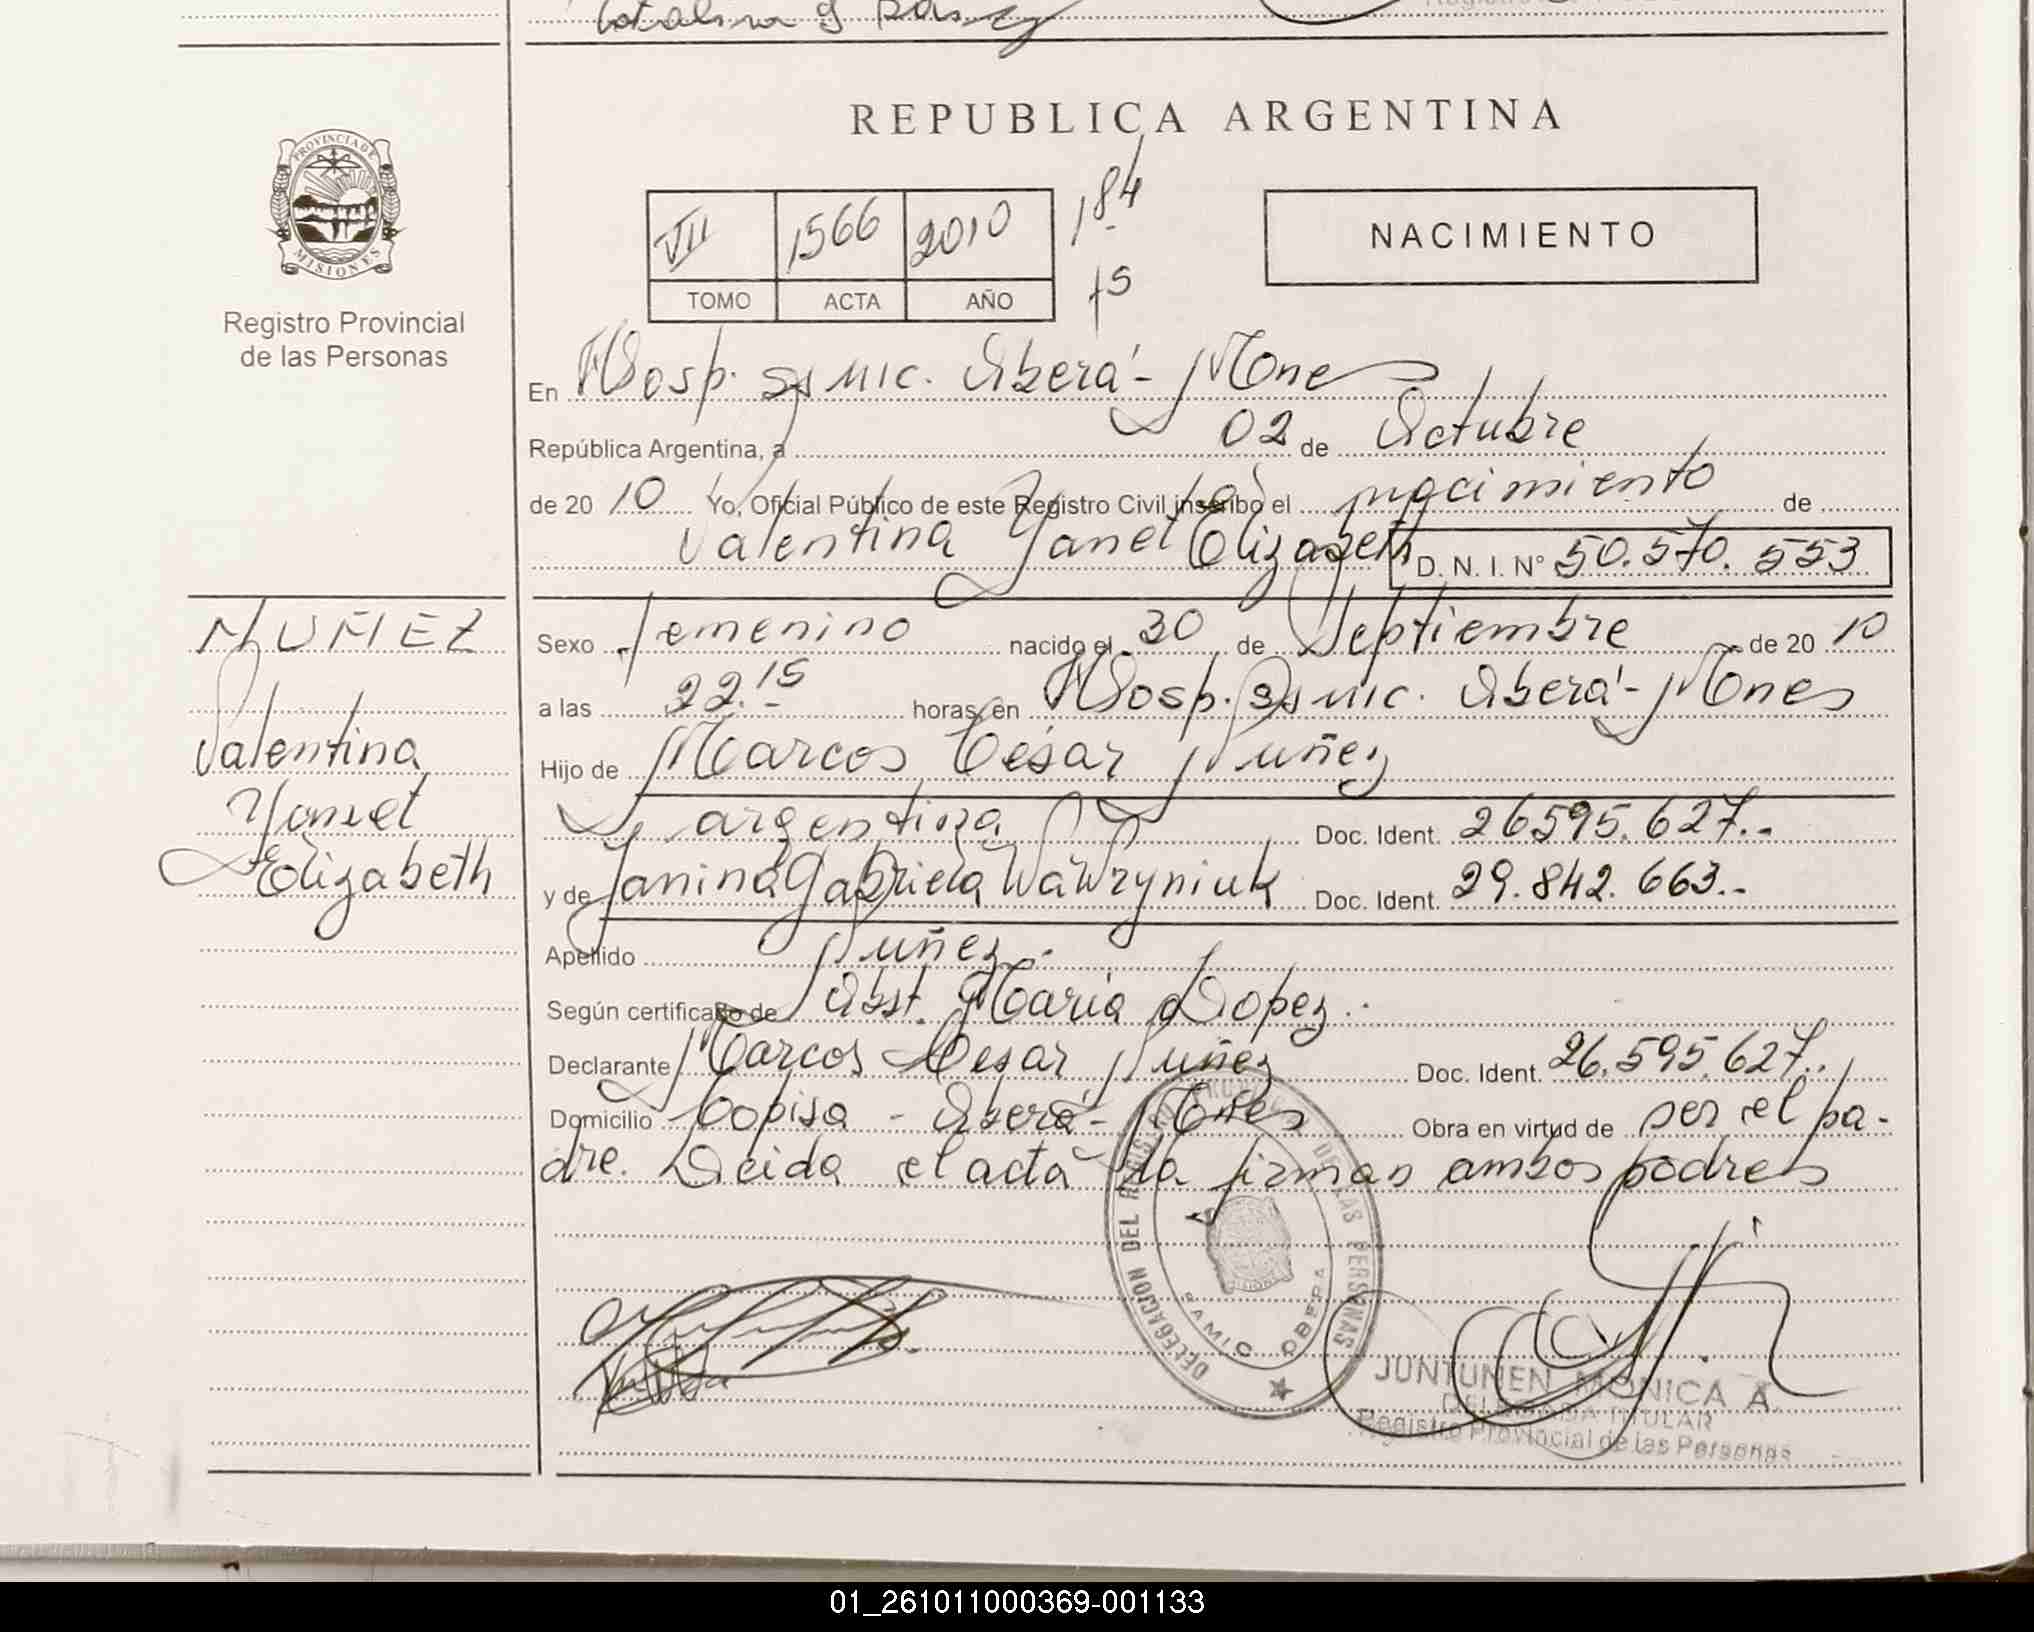 Catalina G
REPUBLICA ARGENTINA
PROVINCIA DE
MISIONES
Registro Provincial
de las Personas
VII 1566 2010
TOMO ACTA AÑO
184
15
NACIMIENTO
En Hosp. SAMIC. Oberá - Mnes
República Argentina, a 02 de Octubre
de 2010 Yo, Oficial Público de este Registro Civil inscribo el nacimiento de
Valentina Yanet Elizabeth D. N. I. N° 50.570.553
NUÑEZ
Valentina
Yanet
Elizabeth
Sexo femenino nacido el 30 de Septiembre de 2010
a las 22.15 horas, en Hosp. SAMIC. Oberá - Mnes
Hijo de Marcos César Nuñez
argentina Doc. Ident. 26.595.627.-
y de Janina Gabriela Wawryniuk Doc. Ident. 29.842.663.-
Apellido Nuñez.-
Según certificado de Obst. María Lopez.-
Declarante Marcos Cesar Nuñez Doc. Ident. 26.595.627.-
Domicilio - Oberá - Mnes Obra en virtud de ser el pa-
dre. Leida el acta la firman ambos padres
DELEGACION DEL REGISTRO PROVINCIAL DE LAS PERSONAS
SAMIC OBERA
JUNTUNEN MONICA A.
DELEGADA TITULAR
Registro Provincial de las Personas
01_261011000369-001133